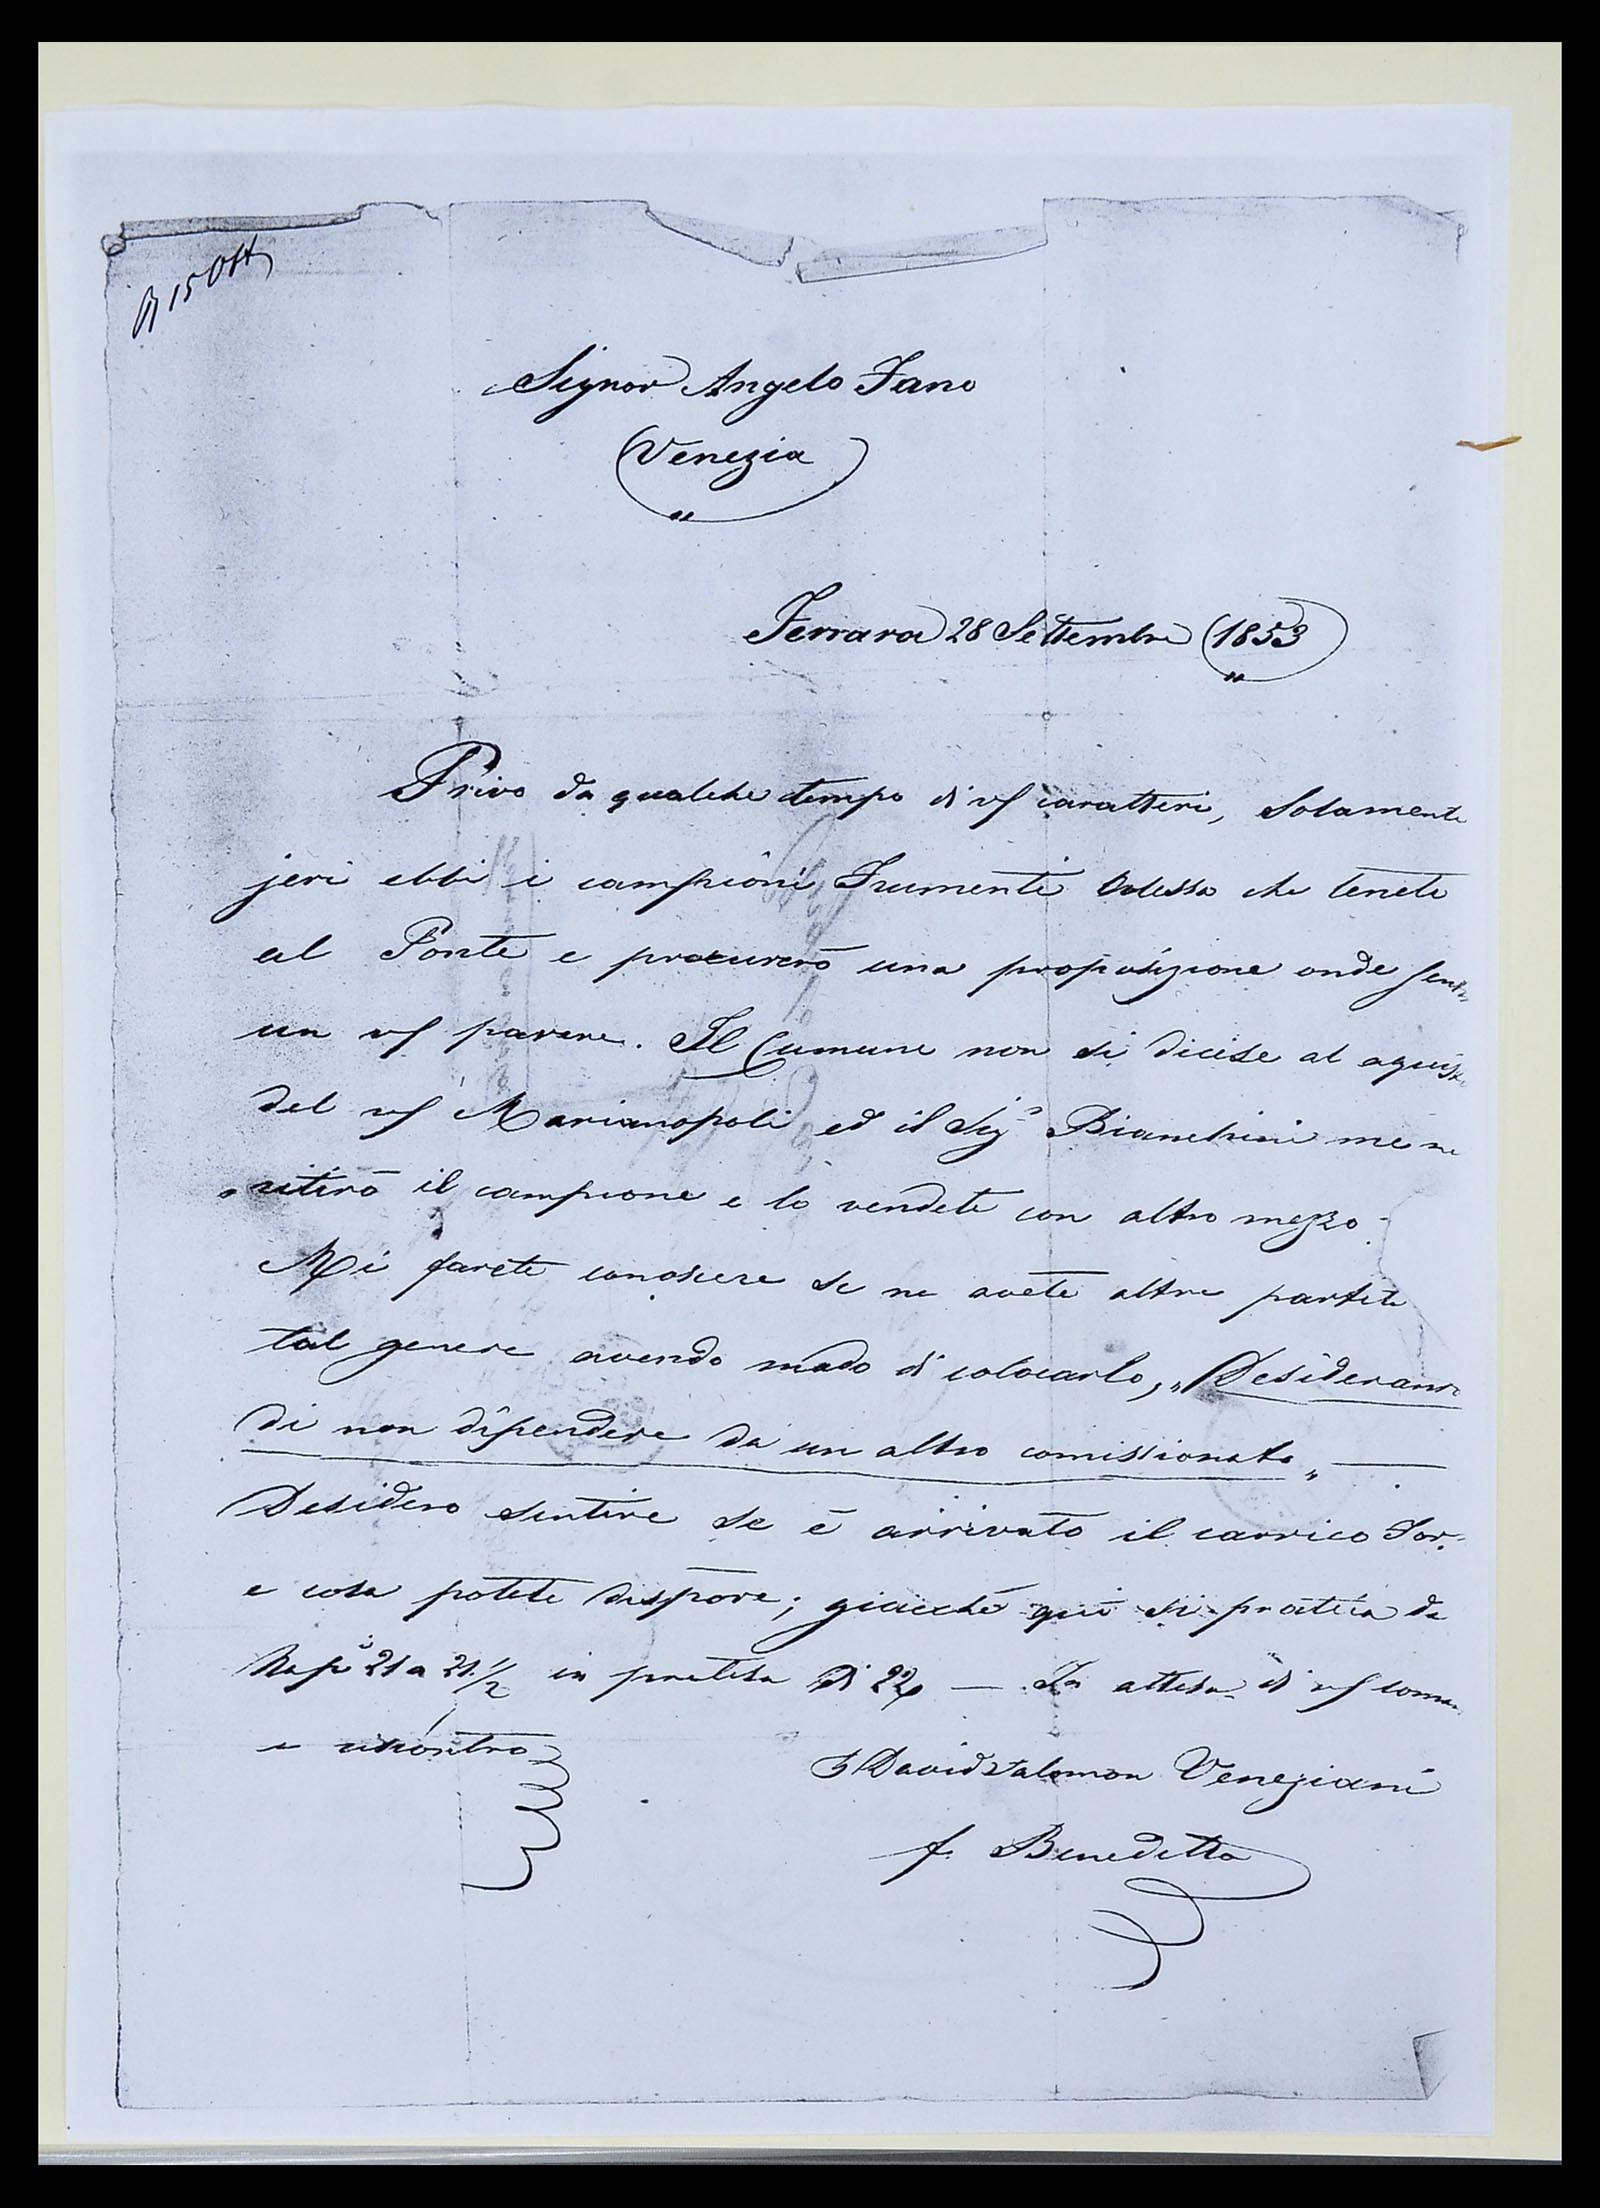 R 15 Ott
Signor Angelo Fano
Venezia
Ferrara 28 Settembre 1853
Privo da qualche tempo di vs caratteri, Solamente
jeri ebbi i campioni Frumenti Odessa che tenete
al Ponte e procurerò una proposizione onde
un vs parere. Il Comune non si dicise al
del vs Marianopoli ed il Sigr Bianchini me ne
ritirò il campione e lo vendete con altro mezzo.
Mi farete conoscere se ne avete altre partite
tal genere avendo modo di colocarlo, „Desiderando
di non dipendere da un altro comissionato„ —
Desidero sentire se è arrivato il carrico For.
e cosa potete dispore; giacché quì si pratica da
Napi 21 a 21 1/2 in pretesa di 22 — In attesa di vs
e riscontro
David Salomon Veneziani
f. Benedetto